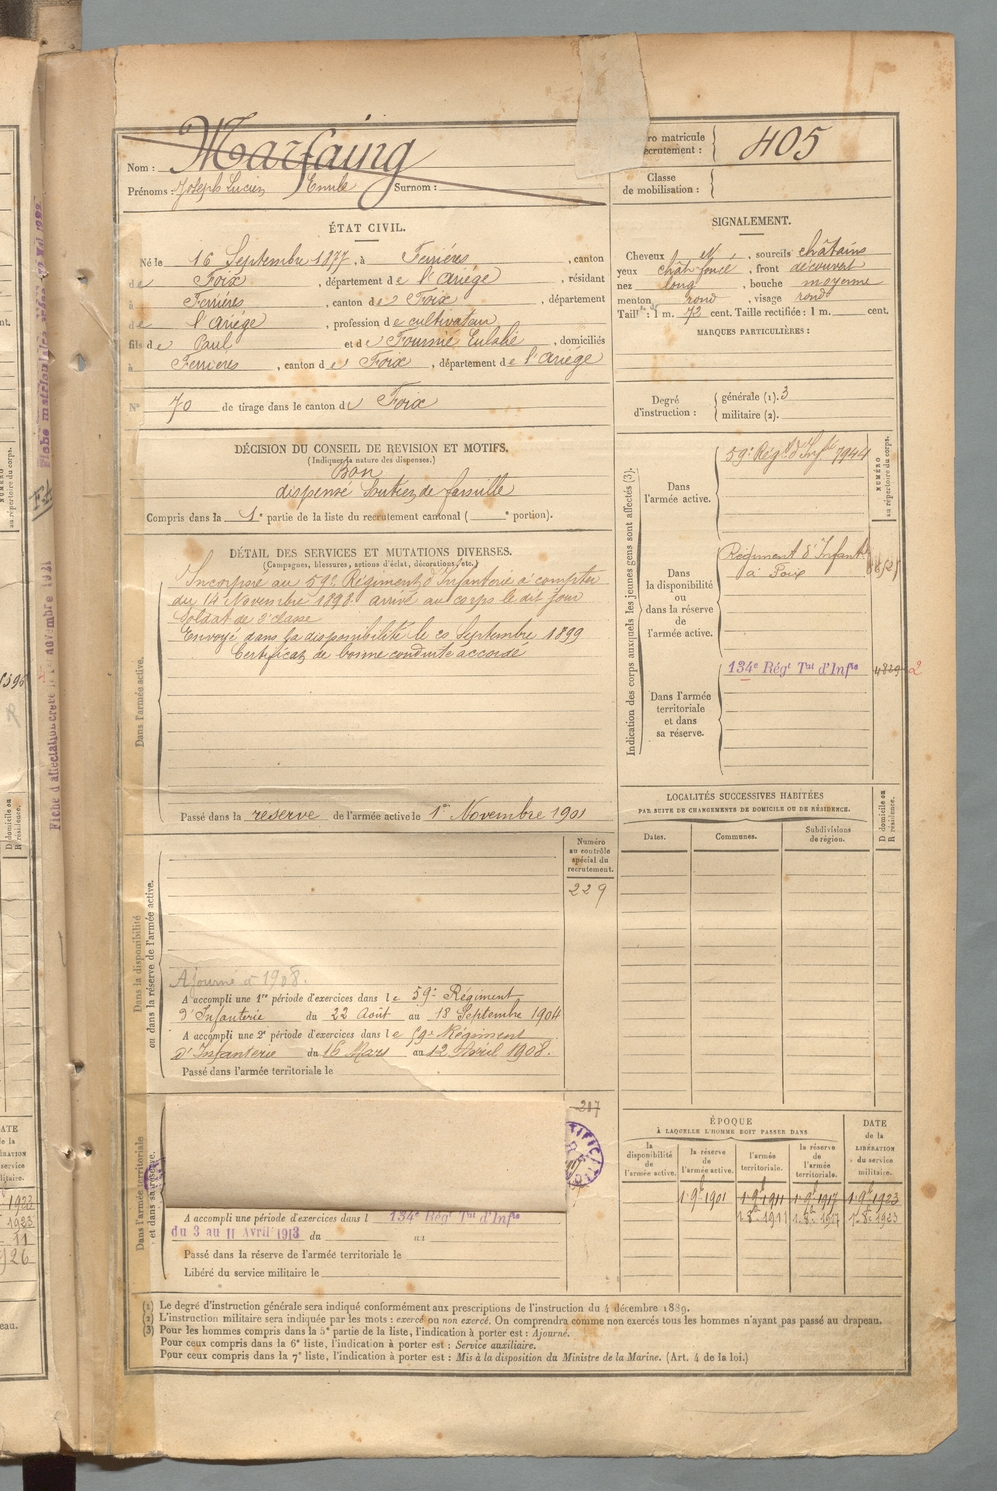 Nom : Marfaing
Prénoms : Joseph Lucien Emile Surnom :
ro matricule
ecrutement : 405
Classe
de mobilisation :
ÉTAT CIVIL.
Né le 16 Septembre 1877, à Ferrières, canton
de Foix, département de l'Ariège, résidant
à Ferrières, canton de Foix, département
de l'Ariège, profession de cultivateur
fils de Paul et de Fournié Eulalie, domiciliés
à Ferrières, canton de Foix, département de l'Ariège
N° 70 de tirage dans le canton de Foix
SIGNALEMENT.
Cheveux et, sourcils châtains
yeux chât foncé, front découvert
nez long, bouche moyenne
menton rond, visage rond
Taille : 1 m. 72 cent. Taille rectifiée : 1 m. cent.
MARQUES PARTICULIÈRES :
Degré
d'instruction :
générale (1). 3
militaire (2).
DÉCISION DU CONSEIL DE REVISION ET MOTIFS.
(Indiquer la nature des dispenses.)
Bon
dispensé Soutien de famille
Compris dans la 1e partie de la liste du recrutement cantonal ( e portion).
DÉTAIL DES SERVICES ET MUTATIONS DIVERSES.
(Campagnes, blessures, actions d'éclat, décorations, etc.)
Dans l'armée active.
Incorporé au 59e Régiment d'Infanterie à compter
du 14 Novembre 1898 arrivé au corps le dit jour
Soldat de 2e classe
Envoyé dans la disponibilité le 20 Septembre 1899
Certificat de bonne conduite accordé
Passé dans la réserve de l'armée active le 1er Novembre 1901
Indication des corps auxquels les jeunes gens sont affectés (3).
NUMÉRO
au répertoire du corps.
Dans
l'armée active.
59e Régt d'Infie 7944
Dans
la disponibilité
ou
dans la réserve
de
l'armée active.
Régiment d'Infant
à Foix
Dans l'armée
territoriale
et dans
sa réserve.
134e Régt Tal d'Infie
LOCALITÉS SUCCESSIVES HABITÉES
PAR SUITE DE CHANGEMENTS DE DOMICILE OU DE RÉSIDENCE.
Dates.
Communes.
Subdivisions
de région.
D domicile ou
R résidence.
Numéro
au contrôle
spécial du
recrutement.
229
Dans la disponibilité
ou dans la réserve de l'armée active.
Ajourné à 1908.
A accompli une 1re période d'exercices dans le 59e Régiment
d'Infanterie du 22 Août au 18 Septembre 1904
A accompli une 2e période d'exercices dans le 59e Régiment
d'Infanterie du 16 Mars au 12 Avril 1908.
Passé dans l'armée territoriale le
Dans l'armée territoriale
et dans sa réserve.
A accompli une période d'exercices dans l 134e Régt Tal d'Infie
du 3 au 11 Avril 1913 du au
Passé dans la réserve de l'armée territoriale le
Libéré du service militaire le
ÉPOQUE
À LAQUELLE L'HOMME DOIT PASSER DANS
la
disponibilité
de
l'armée active.
la réserve
de
l'armée active.
l'armée
territoriale.
la réserve
de
l'armée
territoriale.
DATE
de la
LIBÉRATION
du service
militaire.
1 9bre 1901 1 9bre 1911 1 9bre 1917 1 9bre 1923
1. 8bre 1911 1. 8bre 1917 1. 8bre 1923
(1) Le degré d'instruction générale sera indiqué conformément aux prescriptions de l'instruction du 4 décembre 1889.
(2) L'instruction militaire sera indiquée par les mots : exercé ou non exercé. On comprendra comme non exercés tous les hommes n'ayant pas passé au drapeau.
(3) Pour les hommes compris dans la 5e partie de la liste, l'indication à porter est : Ajourné.
Pour ceux compris dans la 6e liste, l'indication à porter est : Service auxiliaire.
Pour ceux compris dans la 7e liste, l'indication à porter est : Mis à la disposition du Ministre de la Marine. (Art. 4 de la loi.)